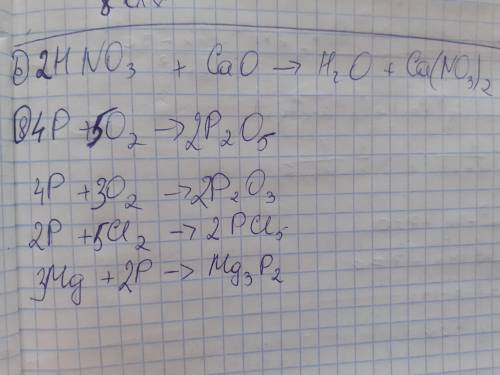 б) 2HNO₃ + CaO → H₂O + Ca(NO₃)₂
8) 4P + 5O₂ → 2P₂O₅
4P + 3O₂ → 2P₂O₃
2P + 5Cl₂ → 2PCl₅
3Mg + 2P → Mg₃P₂